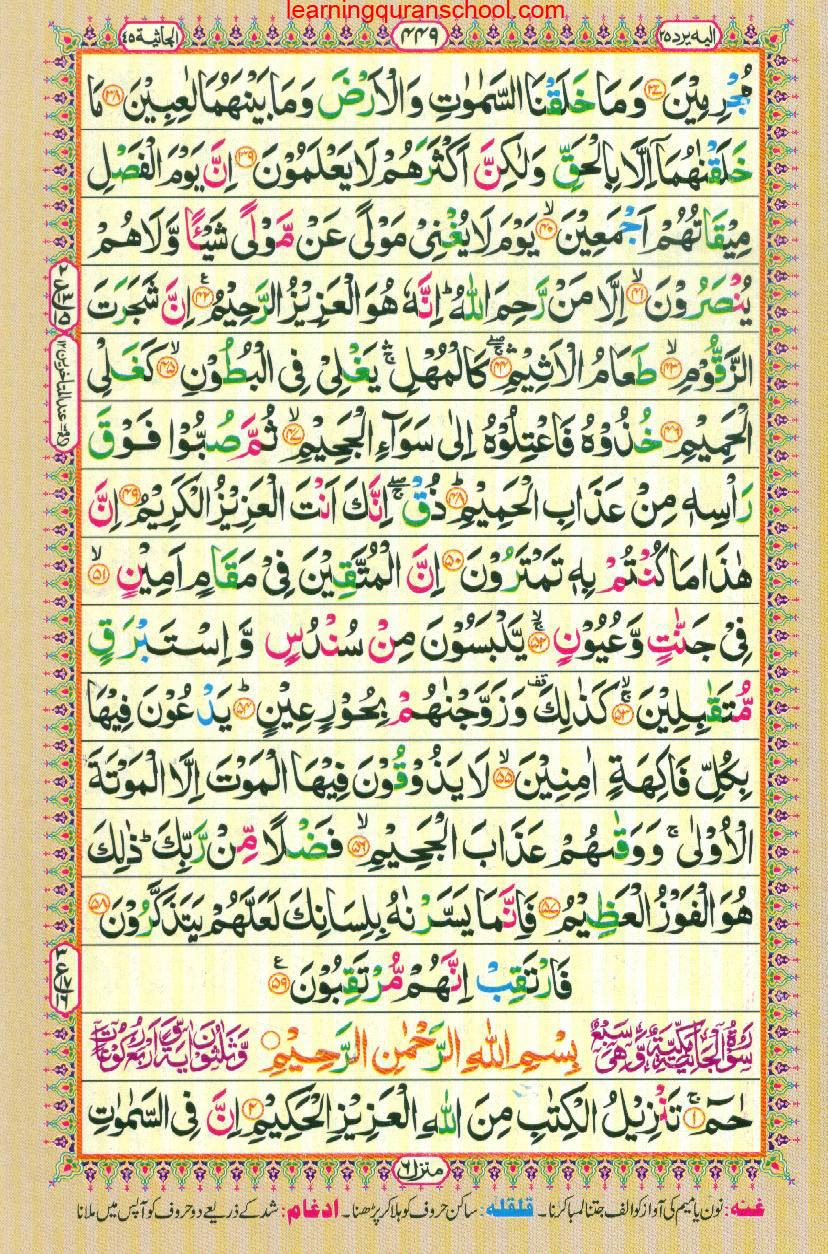 learningquranschool.com
الیه یرد ۲۵
۴۴۹
الجاثیة ۴۵
مُجْرِمِيْنَ ﴿۳۷﴾ وَمَا خَلَقْنَا السَّمٰوٰتِ وَالْاَرْضَ وَمَا بَيْنَهُمَا لٰعِبِيْنَ ﴿۳۸﴾ مَا
خَلَقْنٰهُمَاۤ اِلَّا بِالْحَقِّ وَلٰكِنَّ اَكْثَرَهُمْ لَا يَعْلَمُوْنَ ﴿۳۹﴾ اِنَّ يَوْمَ الْفَصْلِ
مِيْقَاتُهُمْ اَجْمَعِيْنَ ﴿۴۰﴾ۙ يَوْمَ لَا يُغْنِيْ مَوْلًى عَنْ مَّوْلًى شَيْـًٔا وَّلَا هُمْ
يُنْصَرُوْنَ ﴿۴۱﴾ۙ اِلَّا مَنْ رَّحِمَ اللّٰهُ ؕ اِنَّهٗ هُوَ الْعَزِيْزُ الرَّحِيْمُ ﴿۴۲﴾ اِنَّ شَجَرَتَ
الزَّقُّوْمِ ﴿۴۳﴾ۙ طَعَامُ الْاَثِيْمِ ﴿۴۴﴾ كَالْمُهْلِ ۛۚ يَغْلِيْ فِي الْبُطُوْنِ ﴿۴۵﴾ۙ كَغَلْيِ
الْحَمِيْمِ ﴿۴۶﴾ خُذُوْهُ فَاعْتِلُوْهُ اِلٰى سَوَآءِ الْجَحِيْمِ ﴿۴۷﴾ۙ ثُمَّ صُبُّوْا فَوْقَ
رَاْسِهٖ مِنْ عَذَابِ الْحَمِيْمِ ﴿۴۸﴾ؕ ذُقْ ۚۙ اِنَّكَ اَنْتَ الْعَزِيْزُ الْكَرِيْمُ ﴿۴۹﴾ اِنَّ
هٰذَا مَا كُنْتُمْ بِهٖ تَمْتَرُوْنَ ﴿۵۰﴾ اِنَّ الْمُتَّقِيْنَ فِيْ مَقَامٍ اَمِيْنٍ ﴿۵۱﴾ۙ
فِيْ جَنّٰتٍ وَّعُيُوْنٍ ﴿۵۲﴾ۚۙ يَّلْبَسُوْنَ مِنْ سُنْدُسٍ وَّاِسْتَبْرَقٍ
مُّتَقٰبِلِيْنَ ﴿۵۳﴾ۚۙ كَذٰلِكَ ࣞ وَزَوَّجْنٰهُمْ بِحُوْرٍ عِيْنٍ ﴿۵۴﴾ؕ يَدْعُوْنَ فِيْهَا
بِكُلِّ فَاكِهَةٍ اٰمِنِيْنَ ﴿۵۵﴾ۙ لَا يَذُوْقُوْنَ فِيْهَا الْمَوْتَ اِلَّا الْمَوْتَةَ
الْاُوْلٰى ۚ وَوَقٰىهُمْ عَذَابَ الْجَحِيْمِ ﴿۵۶﴾ۙ فَضْلًا مِّنْ رَّبِّكَ ؕ ذٰلِكَ
هُوَ الْفَوْزُ الْعَظِيْمُ ﴿۵۷﴾ فَاِنَّمَا يَسَّرْنٰهُ بِلِسَانِكَ لَعَلَّهُمْ يَتَذَكَّرُوْنَ ﴿۵۸﴾
فَارْتَقِبْ اِنَّهُمْ مُّرْتَقِبُوْنَ ﴿۵۹﴾
سُوْرَةُ الْجَاثِيَةِ مَكِّيَّةٌ وَّهِيَ سَبْعٌ
بِسْمِ اللّٰهِ الرَّحْمٰنِ الرَّحِيْمِ
وَّثَلٰثُوْنَ اٰيَةً وَّاَرْبَعُ رُكُوْعَاتٍ
حٰمٓ ﴿۱﴾ۚ تَنْزِيْلُ الْكِتٰبِ مِنَ اللّٰهِ الْعَزِيْزِ الْحَكِيْمِ ﴿۲﴾ اِنَّ فِي السَّمٰوٰتِ
منزل ۶
غنه: نون یا میم کی آواز کو الف جتنا لمبا کرنا۔ قلقله: ساکن حروف کو ہلا کر پڑھنا۔ ادغام: شد کے ذریعے دو حروف کو آپس میں ملانا